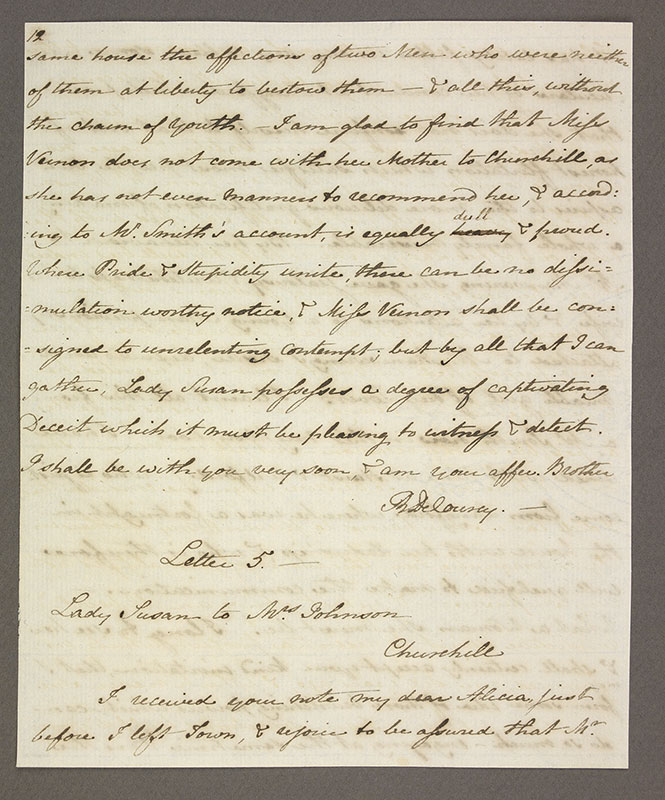 12
same house the affections of two Men who were neither
of them at liberty to bestow them — & all this, without
the charm of Youth. — I am glad to find that Miss
Vernon does not come with her Mother to Churchill, as
she has not even Manners to recommend her, & accord:
:ing to Mr. Smith's account, is equally heavy dull & proud.
Where Pride & Stupidity unite, there can be no dissi=
=mulation worthy notice, & Miss Vernon shall be con=
=signed to unrelenting contempt; but by all that I can
gather, Lady Susan possesses a degree of captivating
Deceit which it must be pleasing to witness & detect.
I shall be with you very soon & am your affec. Brother
R De Courcy. —
Letter 5. —
Lady Susan to Mrs Johnson
Churchill
I received your note my dear Alicia, just
before I left Town, & rejoice to be assured that Mr.